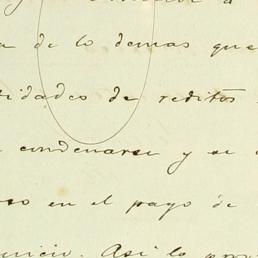 a de lo demas que
tidades de reditos
condenarse y se
so en el pago de
juicio. Asi lo pro